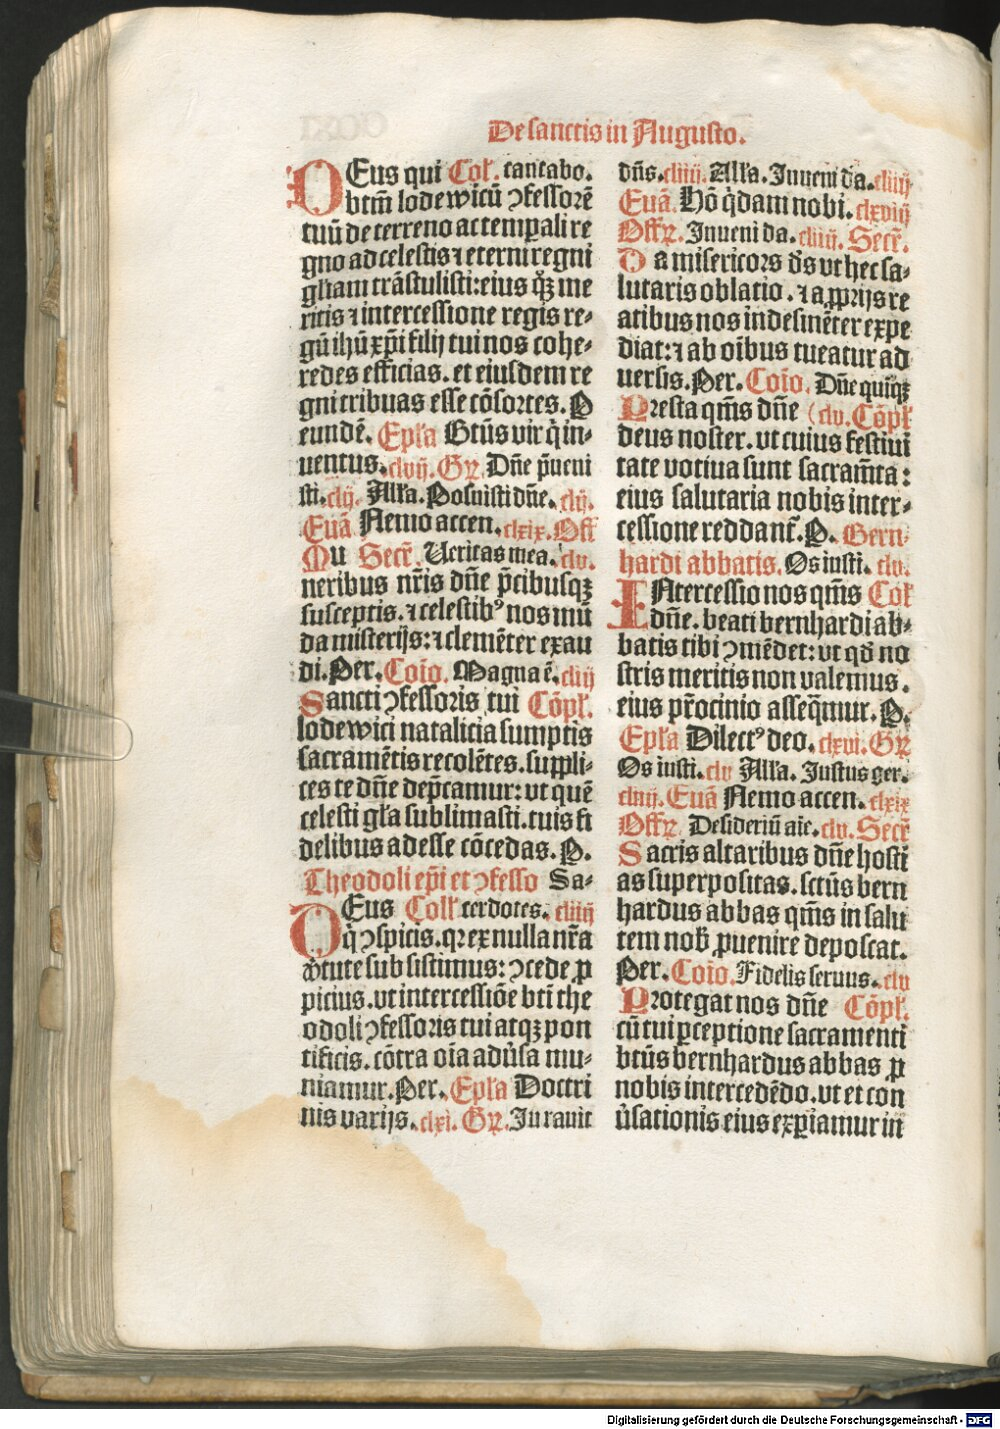 De sanctis in Augusto.
DEus qui Coł. cantabo.
btm̄ lodewicū ↄfessorē
tuū de terreno ac temꝑali re
gno ad celestis ⁊ eterni regni
gl̄iam trāstulisti: eius q̄ꝫ me
ritis ⁊ intercessione regis re⸗
gū ihū xp̄i filij tui nos cohe⸗
redes efficias. et eiusdem re
gni tribuas esse cōsortes. P
eundē. Epl̄a Btūs vir q̇ in⸗
uentus. clvij. Gꝝ. Dn̄e p̄ueni
sti. clij. Alľa. Posuisti dn̄e. clij.
Euā Nemo accen. clxix. Off
Mu Secr̄. Veritas mea. clv.
neribus nr̄is dn̄e p̄cibusqꝫ
susceptis. ⁊ celestibꝰ nos mū
da misterijs: ⁊ clemēter exau
di. Per. Coīo. Magna ē. cliij
Sancti ↄfessoris tui Cōpł.
lodewici natalicia sumptis
sacramētis recolētes. suppli⸗
ces te dn̄e dep̄camur: vt quē
celesti gľa sublimasti. tuis fi
delibus adesse cōcedas. P.
Theodoli ep̄i et ↄfesso Sa⸗
DEus Coll̄ cerdotes. cliiij
q̇ ↄspicis. qꝛ ex nulla nr̄a
v̓tute subsistimus: ↄcede ꝓ
picius. vt intercessiōe bt̄i the
odoli ↄfessoris tui atqꝫ pon
tificis. cōtra oīa adu̓sa mu⸗
niamur. Per. Epl̄a Doctri
nis varijs. clxi. Gꝝ. Iurauit
dn̄s. cliiij. Alľa. Inueni da. cliiij
Euā. Hō q̇dam nobi. clxviij
Offꝝ. Inueni da. cliiij. Secr̄.
Da misericors ds̄ vt hec sa⸗
lutaris oblatio. ⁊ a ꝓprijs re
atibus nos indesinēter expe
diat: ⁊ ab oībus tueatur ad
uersis. Per. Coīo. Dn̄e quīqꝫ
Presta qm̄s dn̄e (clv. Cōpł
deus noster. vt cuius festiui
tate votiua sunt sacram̄ta:
eius salutaria nobis inter⸗
cessione reddant̄. P. Bern⸗
hardi abbatis. Os iusti. clv.
INtercessio nos qm̄s Coł
dn̄e. beati bernhardi ab⸗
batis tibi ↄmēdet: vt qd̄ no
stris meritis non valemus.
eius pr̄ocinio asseq̄mur. P.
Epl̄a Dilectꝰ deo. clxvi. Gꝝ
Os iusti. clv Alľa. Iustus ger.
cliiij. Euā Nemo accen. clxix
Offꝝ Desideriū aīe. clv. Secr̄
Sacris altaribus dn̄e hosti
as superpositas. sctūs bern
hardus abbas qm̄s in salu
tem nob̄ ꝓuenire deposcat.
Per. Coīo. Fidelis seruus. clv
Protegat nos dn̄e Cōpł.
cū tui ꝑceptione sacramenti
btūs bernhardus abbas ꝓ
nobis intercedēdo. vt et con
u̓sationis eius exꝑiamur in
Digitalisierung gefördert durch die Deutsche Forschungsgemeinschaft - DFG